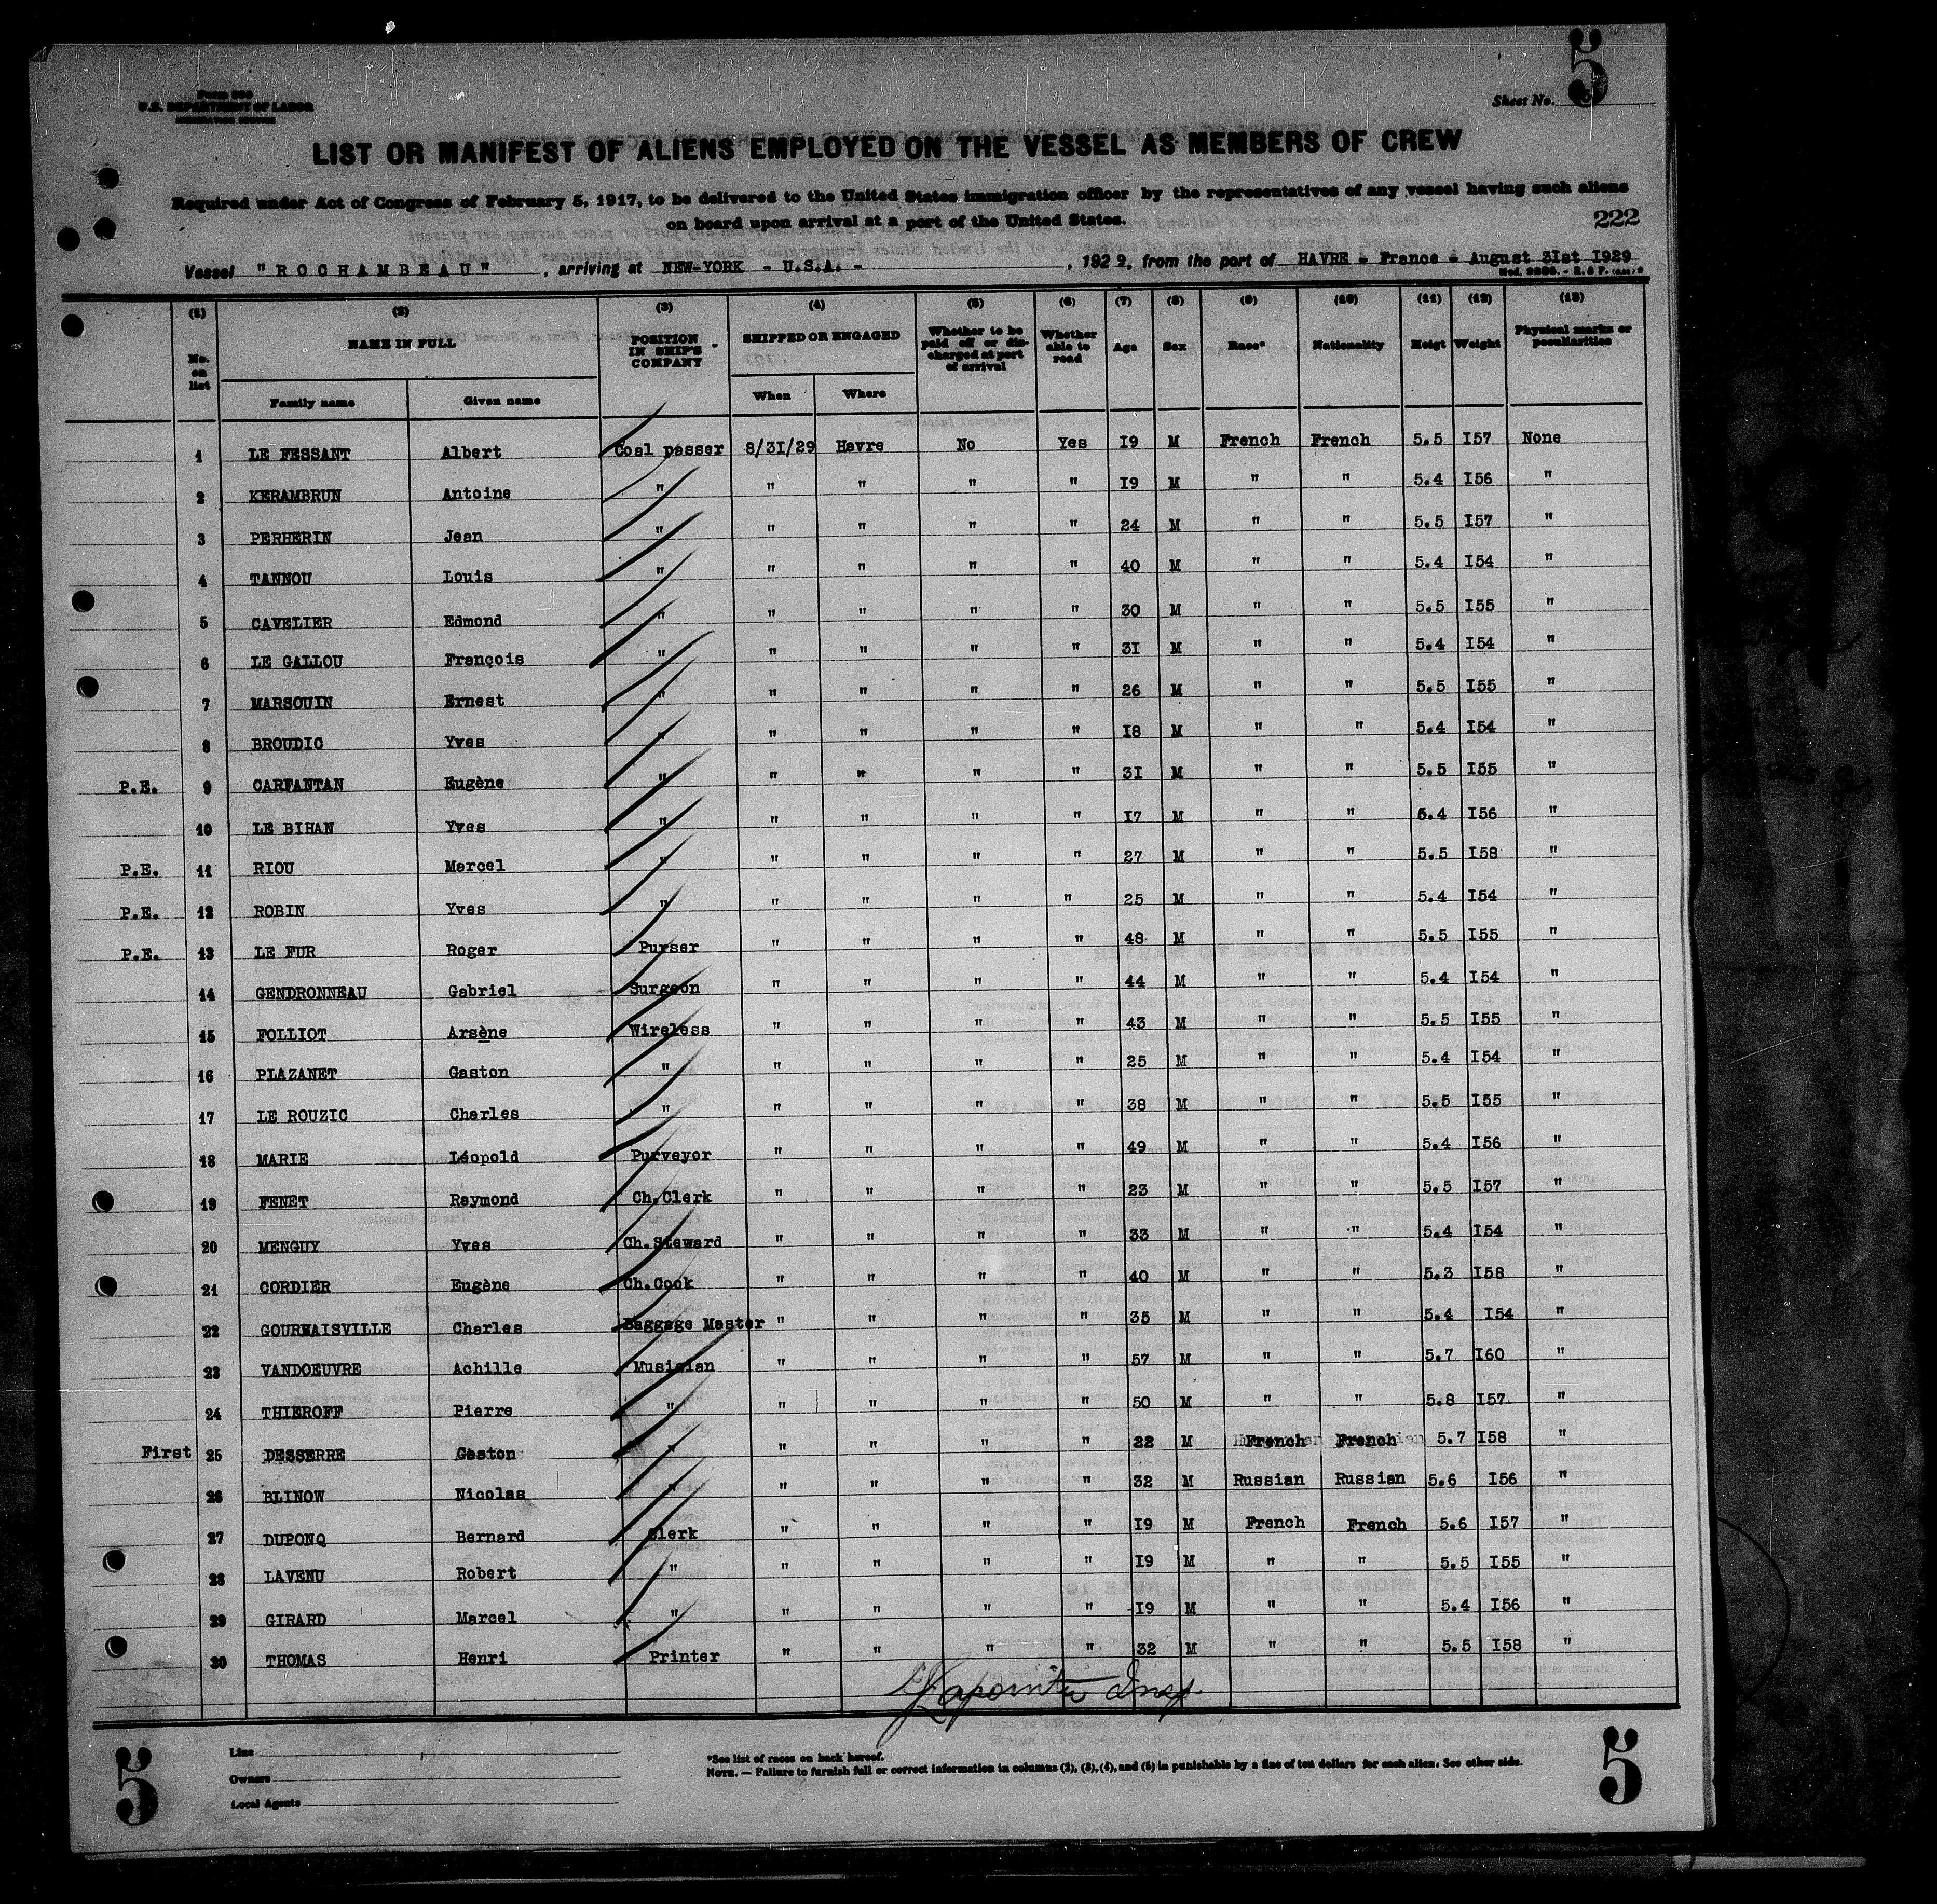 5
Form 680
U.S. DEPARTMENT OF LABOR
IMMIGRATION SERVICE
Sheet No. 5
LIST OR MANIFEST OF ALIENS EMPLOYED ON THE VESSEL AS MEMBERS OF CREW
Required under Act of Congress of February 5, 1917, to be delivered to the United States immigration officer by the representatives of any vessel having such aliens
on board upon arrival at a port of the United States.
222
Vessel "ROCHAMBEAU", arriving at NEW-YORK - U.S.A. -, 1929, from the port of HAVRE - France - August 31st 1929
(1) (2) (3) (4) (5) (6) (7) (8) (9) (10) (11) (12) (13)
No. on list NAME IN FULL POSITION IN SHIP'S COMPANY SHIPPED OR ENGAGED Whether to be paid off or discharged at port of arrival Whether able to read Age Sex Race* Nationality Heigt Weight Physical marks or peculiarities
Family name Given name When Where
1 LE FESSANT Albert Coal passer 8/31/29 Havre No Yes I9 M French French 5.5 I57 None
2 KERAMBRUN Antoine " " " " " I9 M " " 5.4 I56 "
3 PERHERIN Jean " " " " " 24 M " " 5.5 I57 "
4 TANNOU Louis " " " " " 40 M " " 5.4 I54 "
5 CAVELIER Edmond " " " " " 30 M " " 5.5 I55 "
6 LE GALLOU François " " " " " 3I M " " 5.4 I54 "
7 MARSOUIN Ernest " " " " " 26 M " " 5.5 I55 "
8 BROUDIC Yves " " " " " I8 M " " 5.4 I54 "
P.E. 9 CARFANTAN Eugène " " " " " 3I M " " 5.5 I55 "
10 LE BIHAN Yves " " " " " I7 M " " 5.4 I56 "
P.E. 11 RIOU Marcel " " " " " 27 M " " 5.5 I58 "
P.E. 12 ROBIN Yves " " " " " 25 M " " 5.4 I54 "
P.E. 13 LE FUR Roger Purser " " " " 48 M " " 5.5 I55 "
14 GENDRONNEAU Gabriel Surgeon " " " " 44 M " " 5.4 I54 "
15 FOLLIOT Arsène Wireless " " " " 43 M " " 5.5 I55 "
16 PLAZANET Gaston " " " " " 25 M " " 5.4 I54 "
17 LE ROUZIC Charles " " " " " 38 M " " 5.5 I55 "
18 MARIE Léopold Purveyor " " " " 49 M " " 5.4 I56 "
19 FENET Raymond Ch.Clerk " " " " 23 M " " 5.5 I57 "
20 MENGUY Yves Ch.Steward " " " " 33 M " " 5.4 I54 "
21 CORDIER Eugène Ch.Cook " " " " 40 M " " 5.3 I58 "
22 GOURNAISVILLE Charles Baggage Master " " " " 35 M " " 5.4 I54 "
23 VANDOEUVRE Achille Musician " " " " 57 M " " 5.7 I60 "
24 THIEROFF Pierre " " " " " 50 M " " 5.8 I57 "
First 25 DESSERRE Gaston " " " " " 22 M French French 5.7 I58 "
26 BLINOW Nicolas " " " " " 32 M Russian Russian 5.6 I56 "
27 DUPONQ Bernard Clerk " " " " I9 M French French 5.6 I57 "
28 LAVENU Robert " " " " " I9 M " " 5.5 I55 "
29 GIRARD Marcel " " " " " I9 M " " 5.4 I56 "
30 THOMAS Henri Printer " " " " 32 M " " 5.5 I58 "
Lapointe Insp.
Line
Owners
Local Agents
*See list of races on back hereof.
NOTE. — Failure to furnish full or correct information in columns (2), (3), (4), and (5) in punishable by a fine of ten dollars for each alien. See other side.
5
5